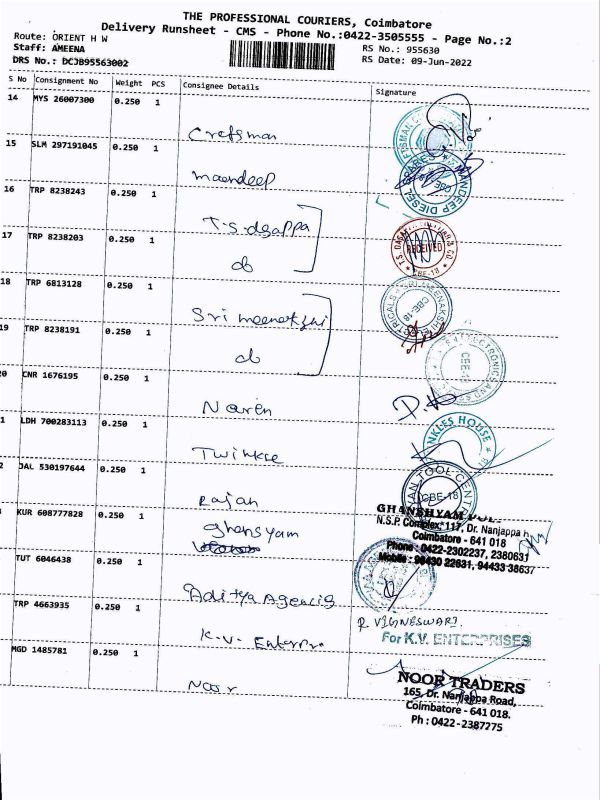 THE PROFESSIONAL COURIERS, Coimbatore
Delivery Runsheet - CMS - Phone No.:0422-3505555 - Page No.:2
Route: ORIENT H W
RS No.: 955630
Staff: AMEENA
RS Date: 09-Jun-2022
DRS No.: DCJB95563002
S No Consignment No Weight PCS Consignee Details Signature
14 MYS 26007300 0.250 1
Crefsman
15 SLM 297191045 0.250 1
maendeep
16 TRP 8238243 0.250 1
T.S. dsappa
17 TRP 8238203 0.250 1
do
RECEIVED
CBE-18
18 TRP 6813128 0.250 1
Sri meenakshi
CBE-18
19 TRP 8238191 0.250 1
do
CBE-18
20 CNR 1676195 0.250 1
Naren
1 LDH 700283113 0.250 1
Twinkle
NKLES HOUSE
2 JAL 530197644 0.250 1
Rajan
TOOL CENT
CBE-18
KUR 608777828 0.250 1
Ghansyam
GHANSHYAM
N.S.P. Complex, 117, Dr. Nanjappa
Coimbatore - 641 018
Phone : 0422-2302237, 2380631
Mobile : 98430 22631, 94433 38637
TUT 6046438 0.250 1
Aditya Agencis
TRP 4663935 0.250 1
K.V. Enterpre
R. VIGNESWARI.
For K.V. ENTERPRISES
MGD 1485781 0.250 1
Noor
NOOR TRADERS
165, Dr. Nanjappa Road,
Coimbatore - 641 018.
Ph : 0422-2387275